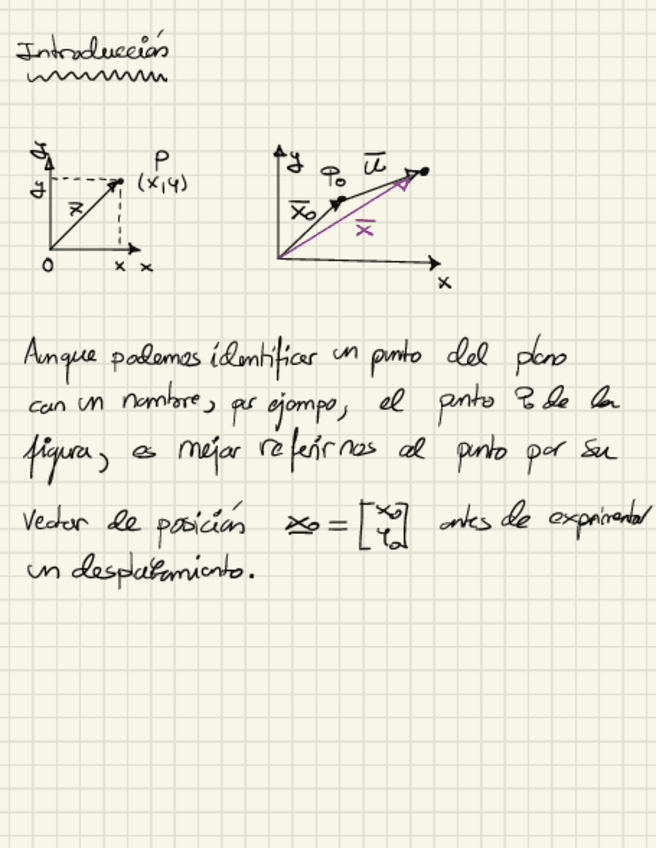 Introducción
y
y
x̅
P
(x,y)
0
x x
y
P₀
u̅
x̅₀
x̅
x
Aunque podemos identificar un punto del plano
con un nombre, por ejompo, el punto P de la
figura, es mejor referirnos al punto por su
Vector de posición x₀ = [x₀ y₀] antes de exprimental
un desplazamiento.